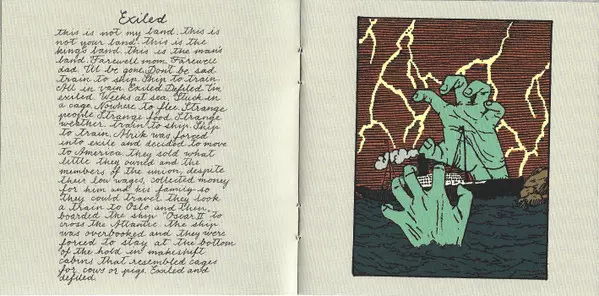 Exiled
this is not my land. this is
not your land. this is the
kings land. this is the man's
land. Farewell mom. Farewell
dad. I'll be gone. Dont be sad
train to ship. Ship to train.
All in vain. Exiled. Defiled. I'm
exiled. Weeks at sea. Stuck in
a cage. Nowhere to flee. Strange
people. Strange food. Strange
weather. train to ship. Ship
to train. Alrik was forced
into exile and decided to move
to America. they sold what
little they owned and the
members of the union, despite
their low wages, collected money
for him and his family so
they could travel. they took
a train to Oslo and then
boarded the ship "Oscar II" to
cross the Atlantic. the ship
was overbooked and they were
forced to stay at the bottom
of the hold in makeshift
cabins that resembled cages
for cows or pigs. Exiled and
defiled.